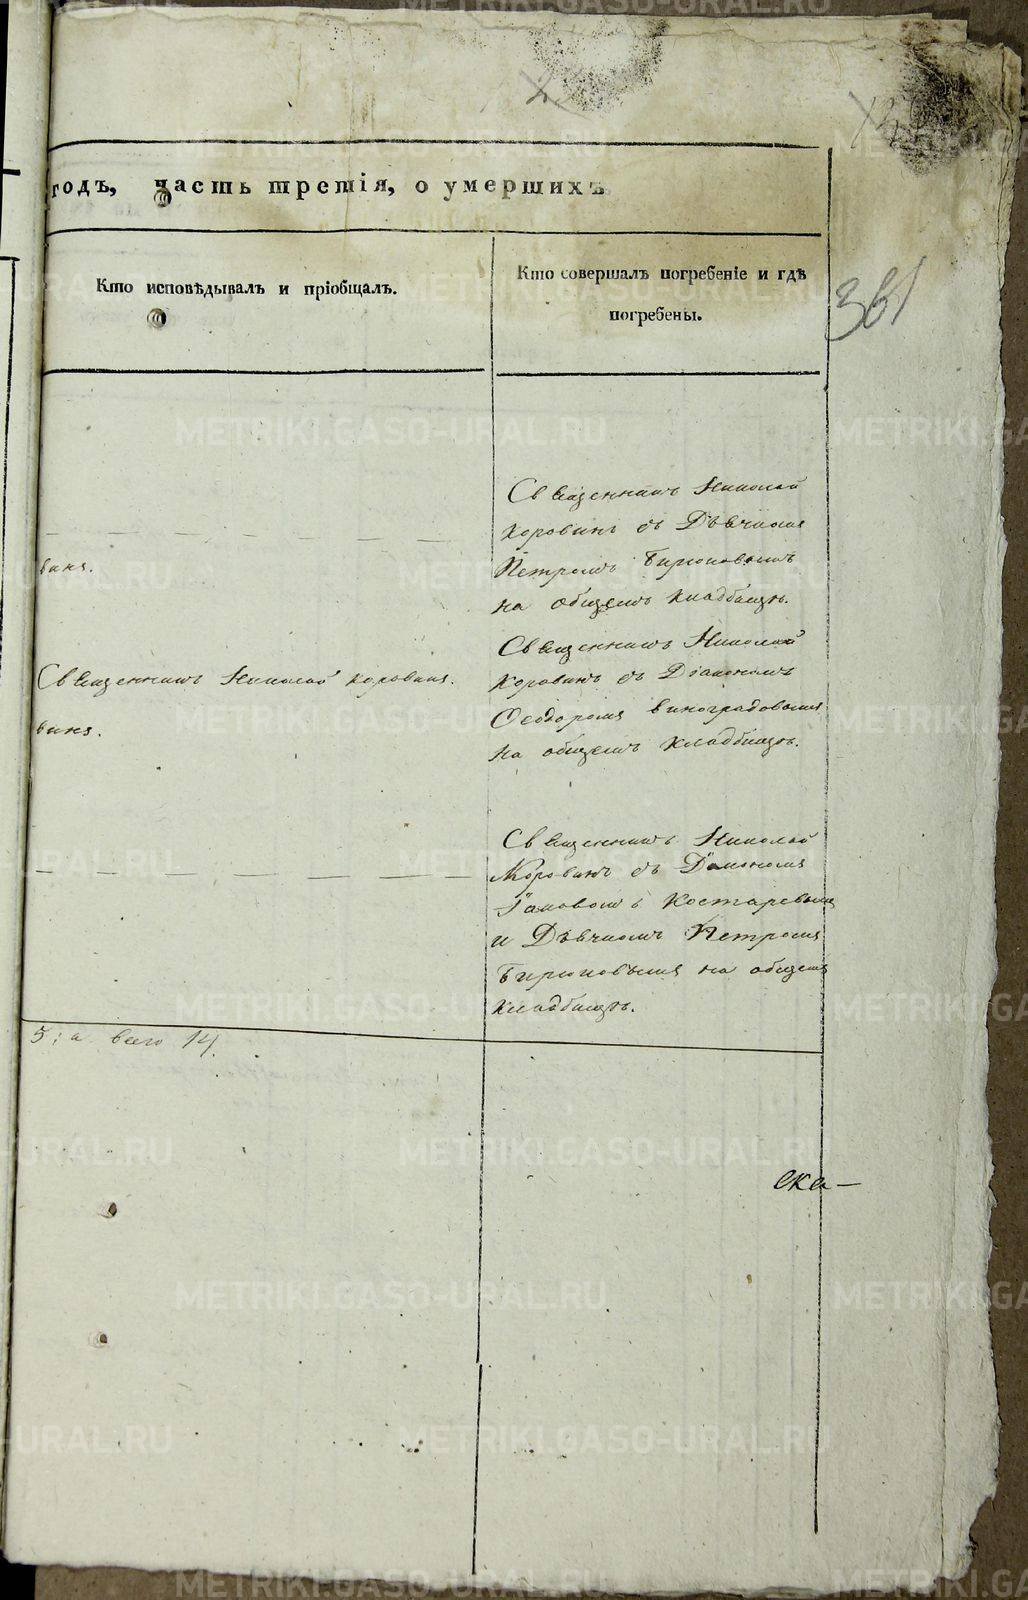 годъ, часть третія, о умершихъ
Кто исповѣдывалъ и пріобщалъ.
Кто совершалъ погребеніе и гдѣ
погребены.
361
Священникъ Николай
Коровинъ съ Дьячкомъ
Петромъ Бирюковымъ
на общемъ кладбищѣ.
Священникъ Николай Коровинъ.
Священникъ Николай
Коровинъ съ Діакономъ
Ѳеодоромъ Виноградовымъ
на общемъ кладбищѣ.
Священникъ Николай
Коровинъ съ Діакономъ
Іаковомъ Костаревымъ
и Дьячкомъ Петромъ
Бирюковымъ на общемъ
кладбищѣ.
5; а всего 14.
METRIKI.GASO-URAL.RU